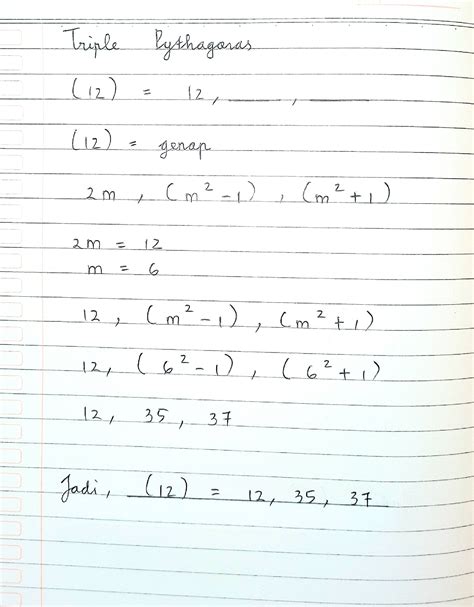 Triple Pythagoras
(12) = 12, ____, ____
(12) = genap
2m, (m² - 1), (m² + 1)
2m = 12
m = 6
12, (m² - 1), (m² + 1)
12, (6² - 1), (6² + 1)
12, 35, 37
Jadi, (12) = 12, 35, 37